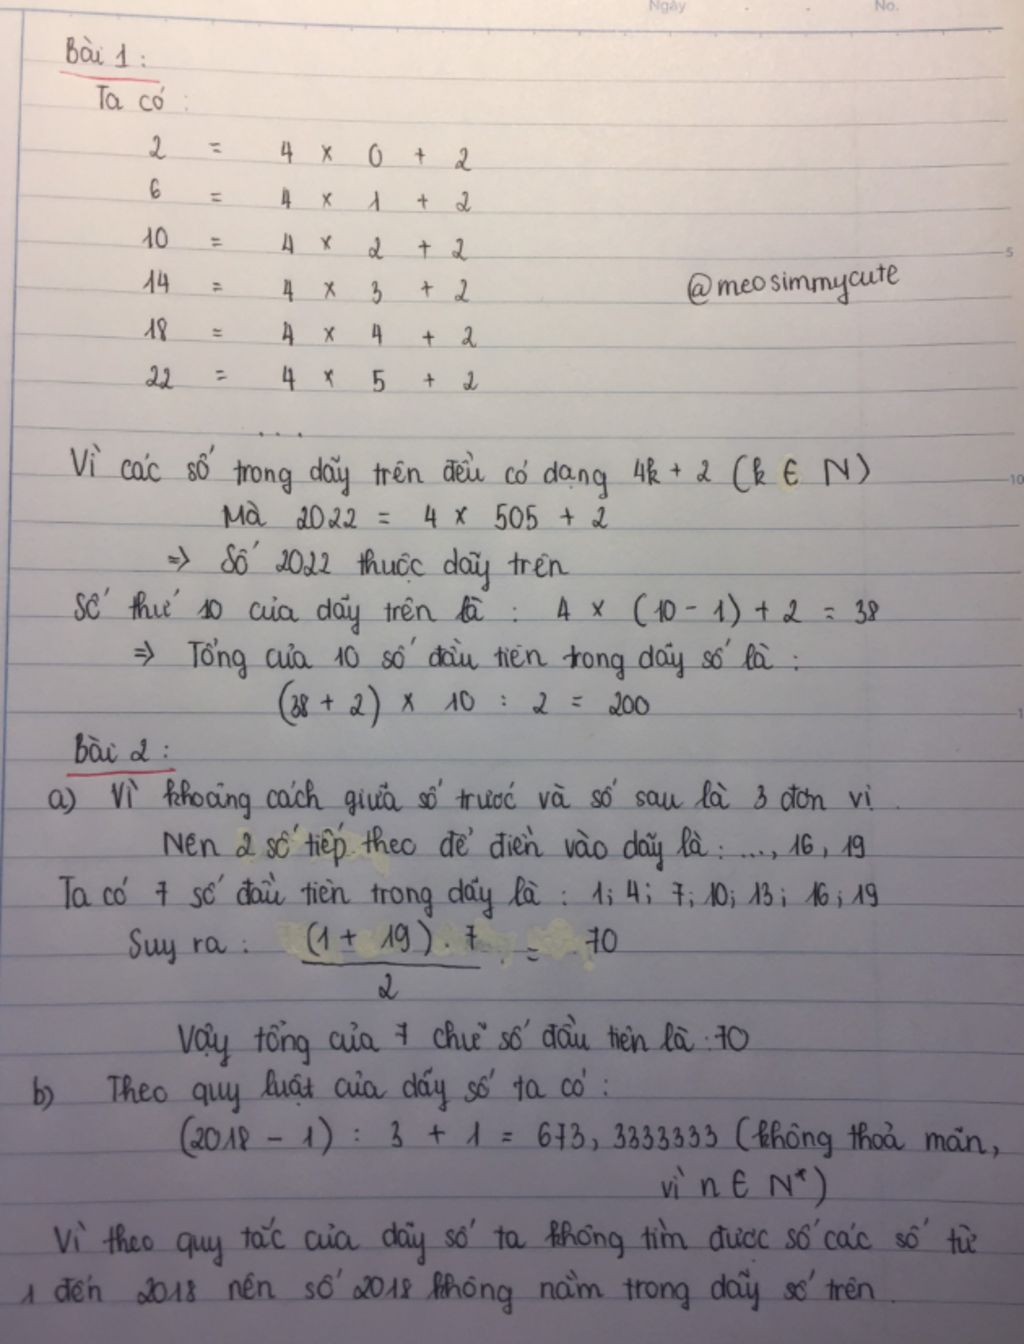 Ngày No.
Bài 1 :
Ta có :
2 = 4 x 0 + 2
6 = 4 x 1 + 2
10 = 4 x 2 + 2
5
14 = 4 x 3 + 2
@meosimmycute
18 = 4 x 4 + 2
22 = 4 x 5 + 2
...
Vì các số trong dãy trên đều có dạng 4k + 2 (k ∈ N)
10
Mà 2022 = 4 x 505 + 2
=> Số 2022 thuộc dãy trên
Số thứ 10 của dãy trên là : 4 x (10 - 1) + 2 = 38
=> Tổng của 10 số đầu tiên trong dãy số là :
(38 + 2) x 10 : 2 = 200
1
Bài 2 :
a) Vì khoảng cách giữa số trước và số sau là 3 đơn vị
Nên 2 số tiếp theo để điền vào dãy là : ..., 16, 19
Ta có 7 số đầu tiên trong dãy là : 1; 4; 7; 10; 13; 16; 19
Suy ra : (1 + 19) . 7 / 2 = 70
Vậy tổng của 7 chữ số đầu tiên là : 70
b) Theo quy luật của dãy số ta có :
(2018 - 1) : 3 + 1 = 673, 3333333 (không thoả mãn,
vì n ∈ N*)
Vì theo quy tắc của dãy số ta không tìm được số các số từ
1 đến 2018 nên số 2018 không nằm trong dãy số trên.